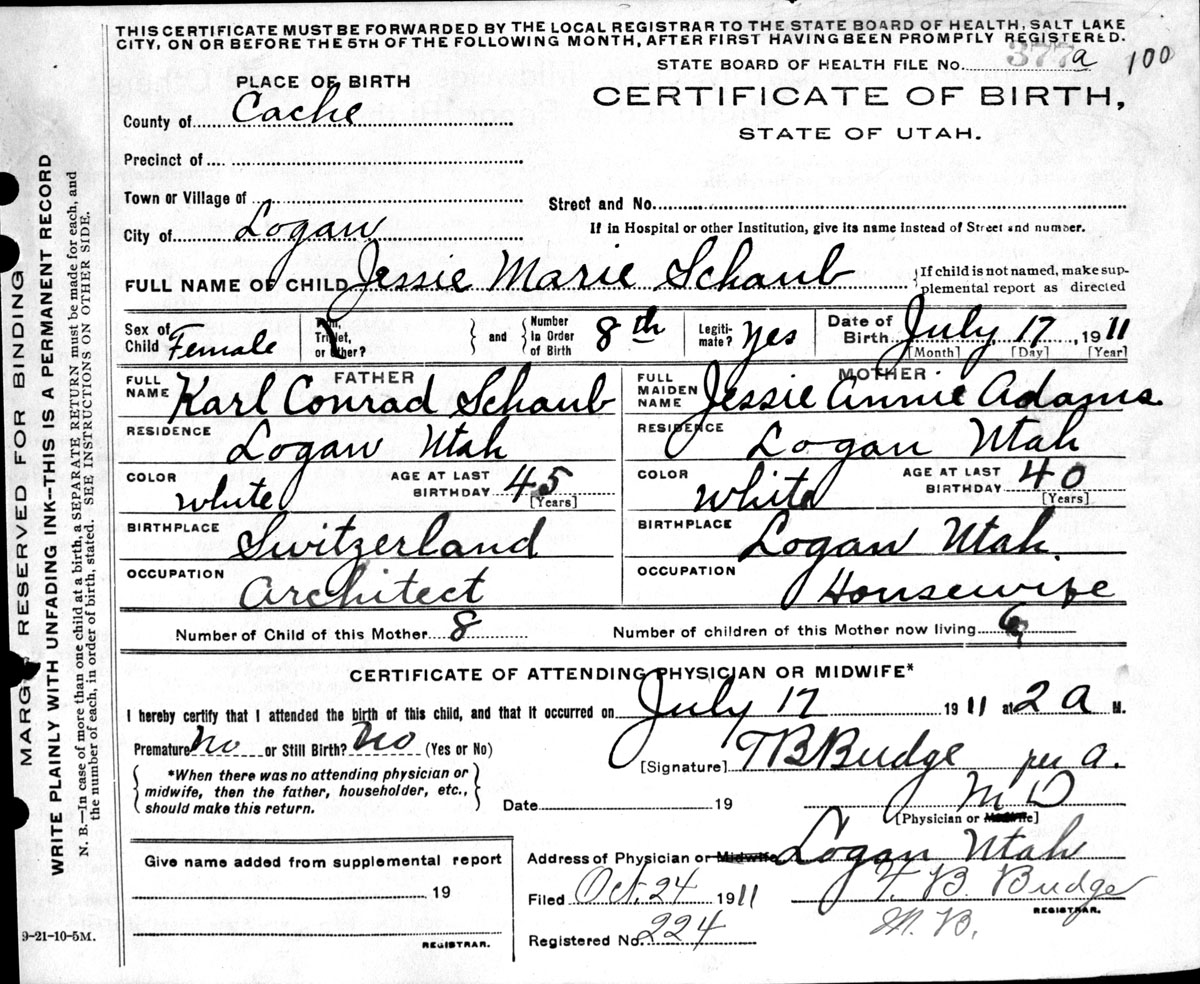 THIS CERTIFICATE MUST BE FORWARDED BY THE LOCAL REGISTRAR TO THE STATE BOARD OF HEALTH, SALT LAKE
CITY, ON OR BEFORE THE 5TH OF THE FOLLOWING MONTH, AFTER FIRST HAVING BEEN PROMPTLY REGISTERED.
STATE BOARD OF HEALTH FILE NO. 377a 100
PLACE OF BIRTH
CERTIFICATE OF BIRTH,
STATE OF UTAH.
County of Cache
Precinct of
Town or Village of
Street and No.
City of Logan
If in Hospital or other Institution, give its name Instead of Street and number.
FULL NAME OF CHILD Jessie Marie Schaub
{If child is not named, make sup-
plemental report as directed
Sex of Child Female
Twin, Triplet, or Other? } and { Number in Order of Birth 8th
Legiti-mate? Yes
Date of Birth July 17, 1911
[Month] [Day] [Year]
FATHER
FULL NAME Karl Conrad Schaub
RESIDENCE Logan Utah
COLOR White AGE AT LAST BIRTHDAY 45
[Years]
BIRTHPLACE Switzerland
OCCUPATION Architect
MOTHER
FULL MAIDEN NAME Jessie Annie Adams.
RESIDENCE Logan Utah
COLOR White AGE AT LAST BIRTHDAY 40
[Years]
BIRTHPLACE Logan Utah.
OCCUPATION Housewife
Number of Child of this Mother 8 Number of children of this Mother now living 6
CERTIFICATE OF ATTENDING PHYSICIAN OR MIDWIFE*
I hereby certify that I attended the birth of this child, and that it occurred on July 17 1911 at 2 a M.
Premature? No or Still Birth? No (Yes or No)
*When there was no attending physician or
midwife, then the father, householder, etc.,
should make this return.
[Signature] T B Budge per a.
Date 19 M D
[Physician or Midwife]
Give name added from supplemental report
19
REGISTRAR.
Address of Physician or Midwife Logan Utah
Filed Oct. 24 1911 T. B. Budge
REGISTRAR.
M. D.
Registered No. 224
9-21-10-5M.
MARGIN RESERVED FOR BINDING
WRITE PLAINLY WITH UNFADING INK—THIS IS A PERMANENT RECORD
N. B.—In case of more than one child at a birth, a SEPARATE RETURN must be made for each, and
the number of each, in order of birth, stated. SEE INSTRUCTIONS ON OTHER SIDE.